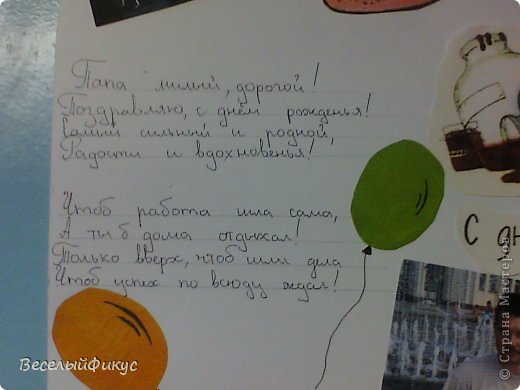 Папа милый, дорогой!
Поздравляю, с днём рожденья!
Самый сильный и родной,
Радости и вдохновенья!
Чтоб работа шла сама,
А ты б дома отдыхал!
Только вверх, чтоб шли дела
Чтоб успех по всюду ждал!
С
ВеселыйФикус
© Страна Мастеров